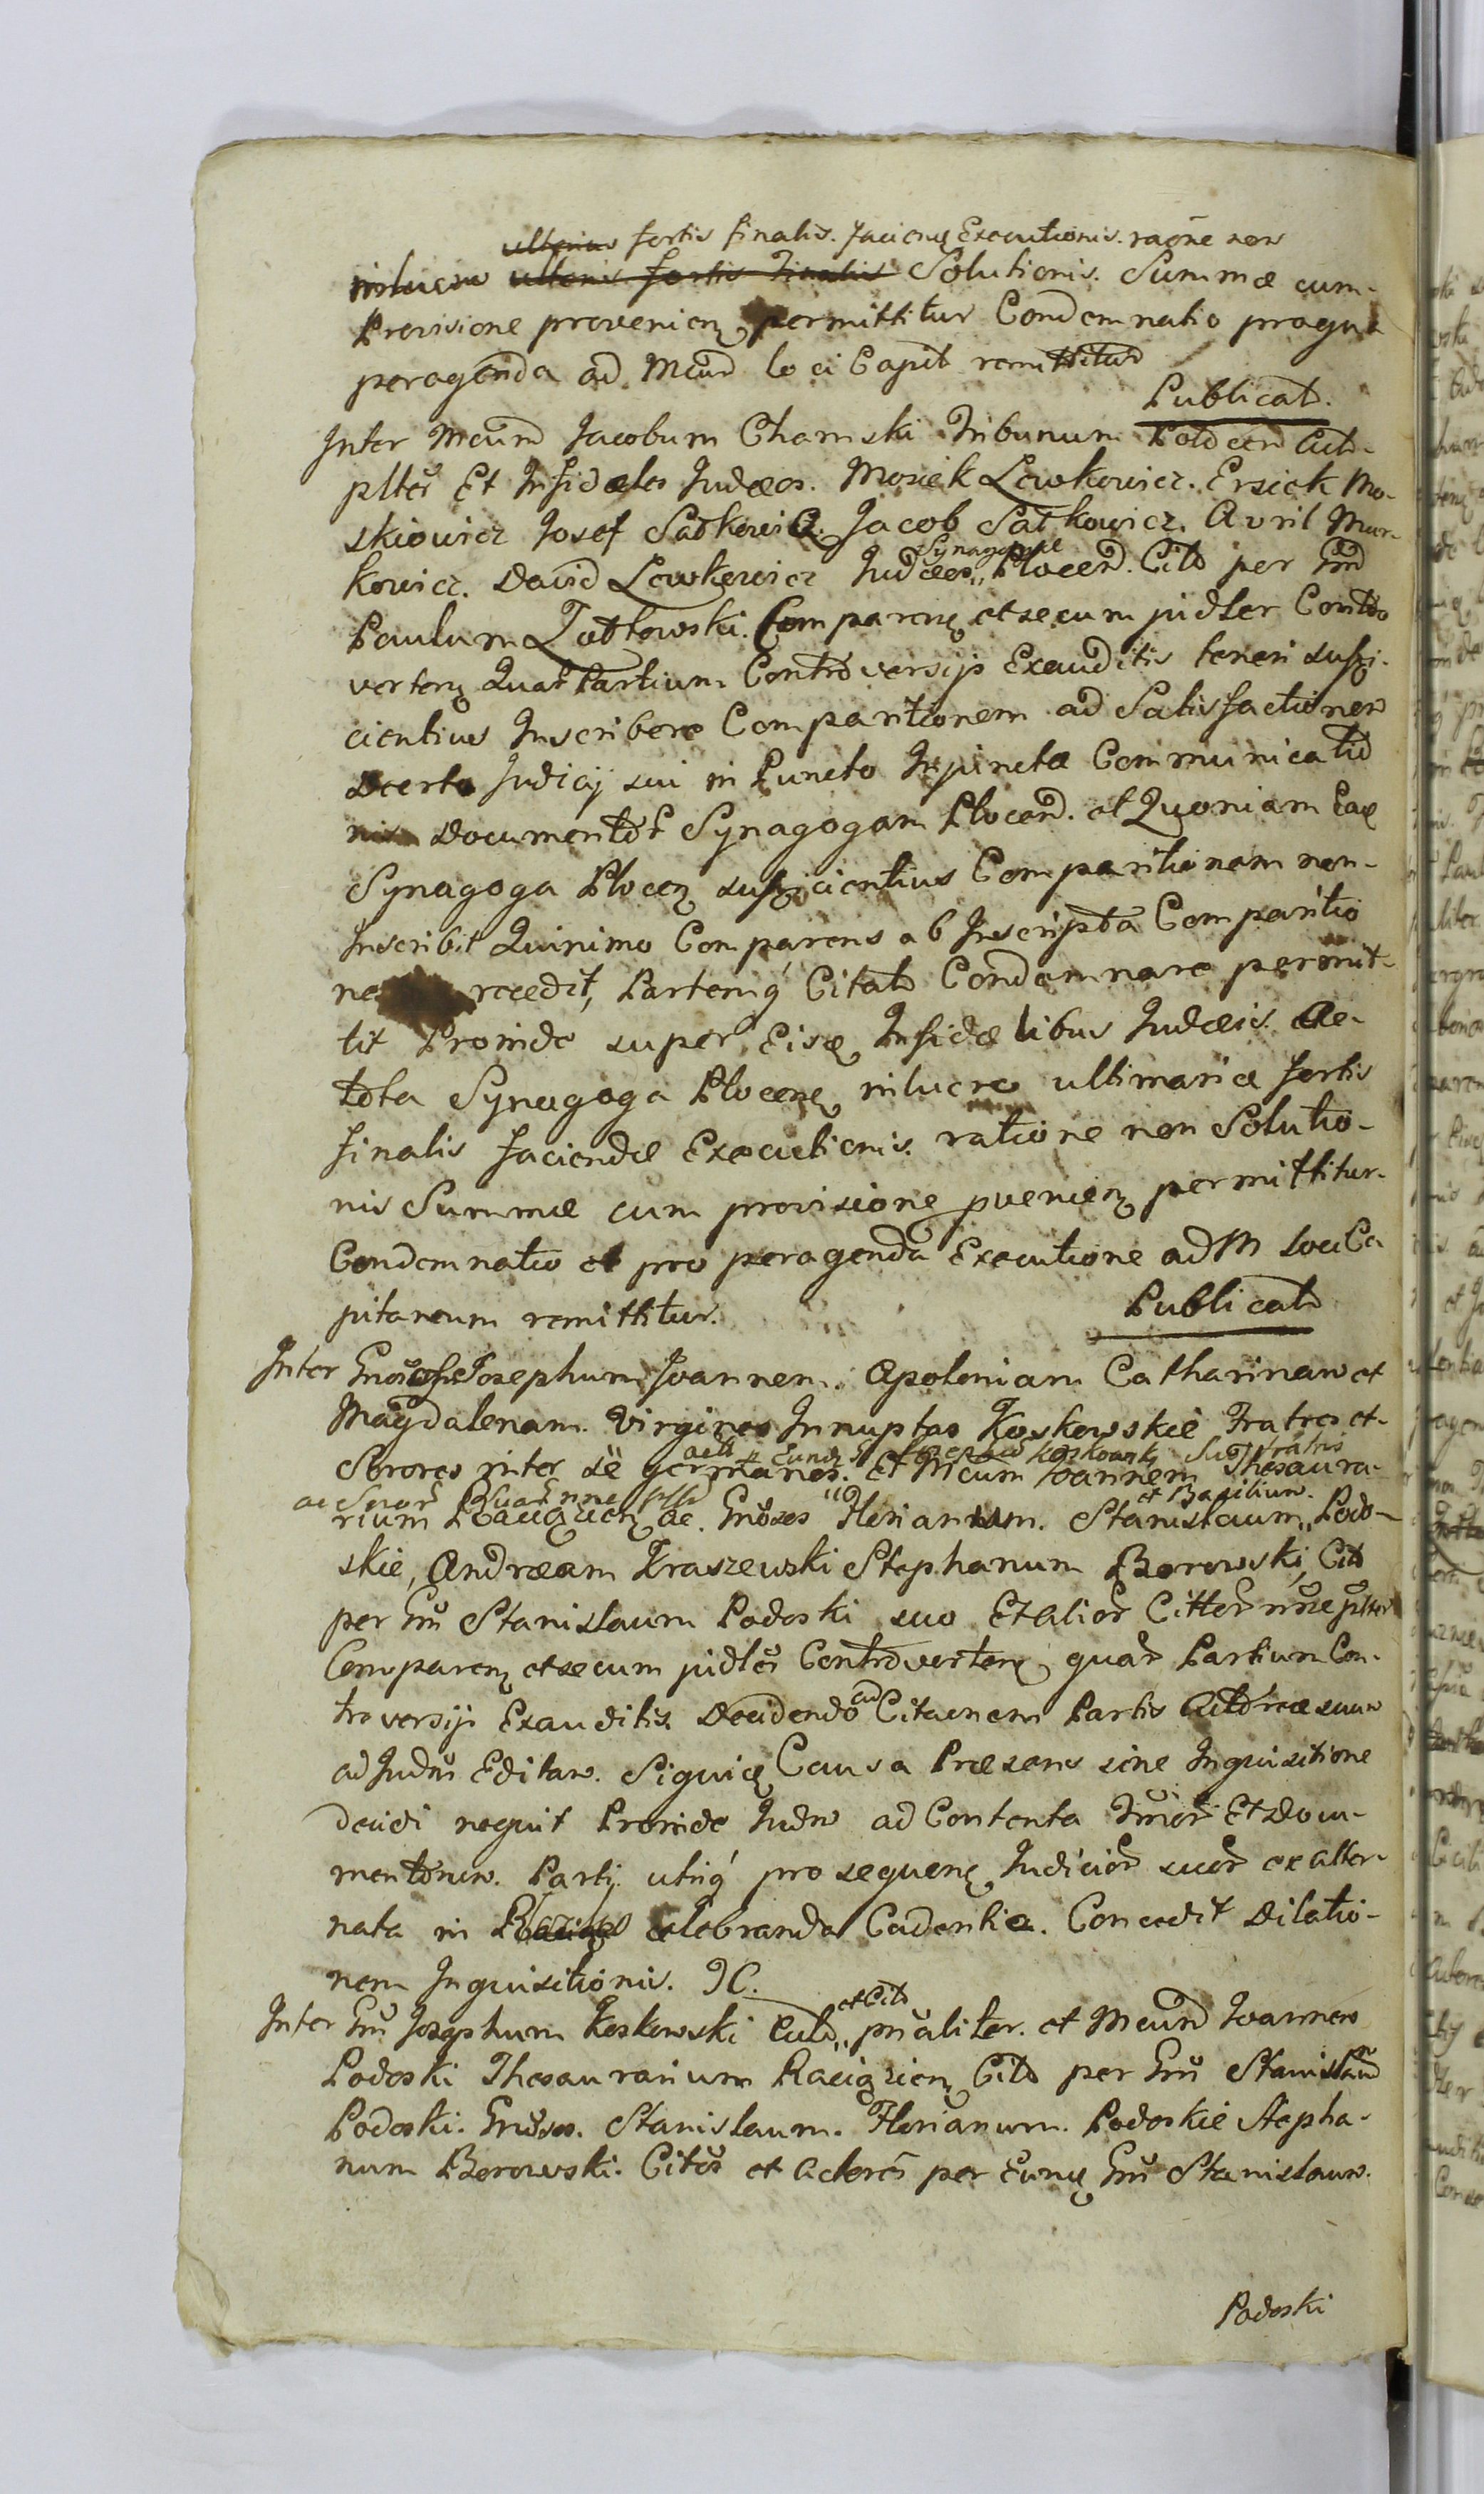 ulterius fortis finalis. faciens Executionis. raone non
inlucro ulterius fortis finalis Solutionis. Summæ cum
Provisione provenien permittitur Condemnatio proqua
peragenda ad Mcum lo ci Capit remittitur
Publicat.
Inter Mcum Jacobum Chamski Tribunum Plocen Act
plter Et Infidæles Judæos. Mosiek Lewkowicz. Ersiek Mo-
skiowicz Josef Satkowicz. Jacob Satkowicz. Avril Mur-
kowicz. David Lewkowicz Judæos Synagogæ Plocen. Citt per Gnd
Paulum Comparen et secum pidler Contro
verten Quar Partium Controversijs Exauditis teneri suffi-
cientius Inscribere Comparitionem ad Satisfactionem
Dcerto Judicij sui in Puncto Injunctæ Communicatio
nis Documentor Synagogam Plocen. et Quoniam Eaq
Synagoga Plocen sufficientius Comparitionem non-
Inscribit Quinimo Comparens ab Inscripta Comparitio
ne recedit, Partemq Citatt Condemnare permit-
tit Proinde super Eisq Infidælibus Judæis Ae-
tota Synagoga Plocen inlucro ultimaria fortis
finalis faciendæ Executionis. ratione non Solutio-
nis Summæ cum provisione pvenien permittitur
Condemnatio et pro peragenda Executione ad M loci Ca
pitaneum remittitur.
Publicat
Inter Gnosos Josephum Joannem. Apoloniam Catharinam et
Magdalenam. Virgines Innuptas Koskowskie Fratres et
Sorores inter se germanos. Et Mcum Joannem Thesaura-
rium ac. Gnosos Florianum. Stanislaum et Basilium. Podo-
skie, Andream Kraszewski Stephanum Borowski, Citt
per Gnu Stanislaum Podoski suo Et alior Cittor noie plter
Comparen et secum pidler Controverten quar Partium Con-
troversijs Exauditis Decidendo ad Citaonem Partis Actoreæ suum
ad Judm Editam. Siquiq Causa Præsens sine Inquisitione
decidi nequit Proinde Judm ad Contenta Jurior Et Docu-
mentorum. Partj. utriq pro sequen Judicior suor ex alter-
nata in celebranda Cadentia. Concedit Dilatio-
nem Inquisitionis. JC.
Inter Gnu Josephum Koskowski Actt et Citt pnaliter. et Mcum Joannem
Podoski Thesaurarium Raciązien Citt per Gnu Stanislaum
Podoski. Gnosos. Stanislaum. Florianum. Podoskie Stepha-
num Borowski. Citos et Actores per Eunq Gnu Stanislaum.
Podoski